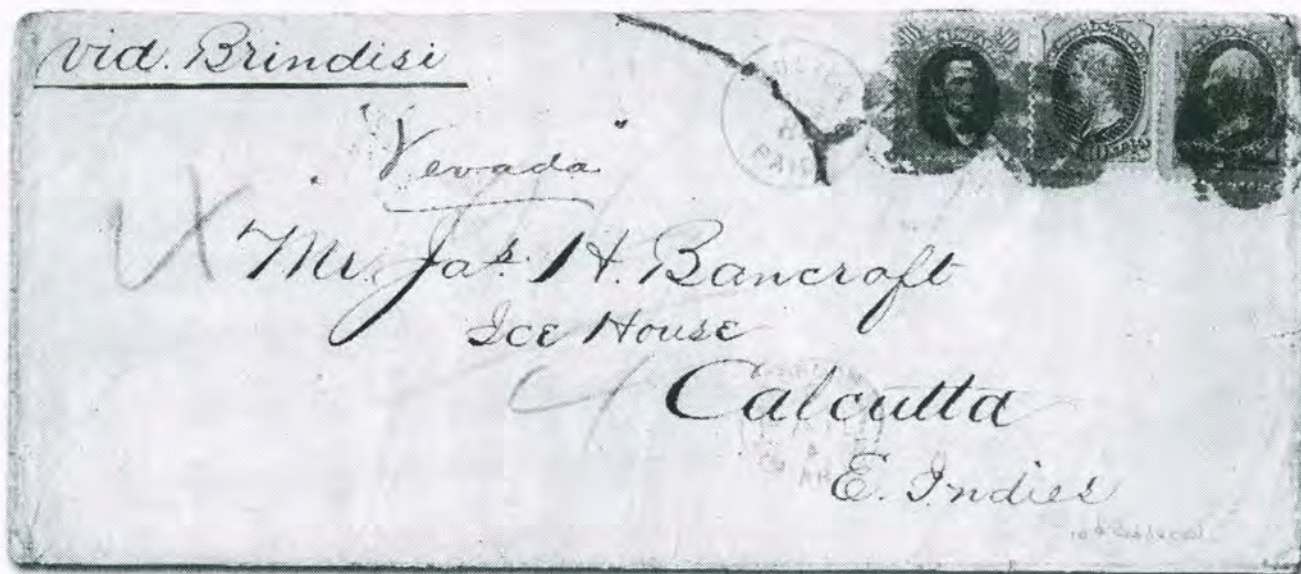 via. Brindisi
"Nevada"
Mr. Jas. H. Bancroft
Ice House
Calcutta
E. Indies
PAID